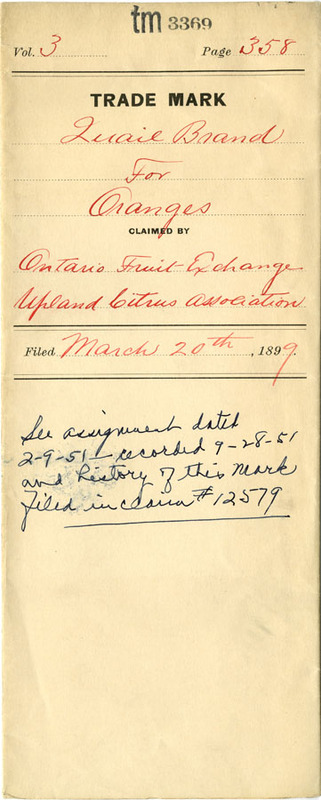 tm 3369
Vol. 3 Page 358
TRADE MARK
Quail Brand
For
Oranges
CLAIMED BY
Ontario Fruit Exchange
Upland Citrus Association
Filed March 20th, 1899.
See assignment dated
2-9-51 - recorded 9-28-51
and history of this Mark
filed in claim # 12579